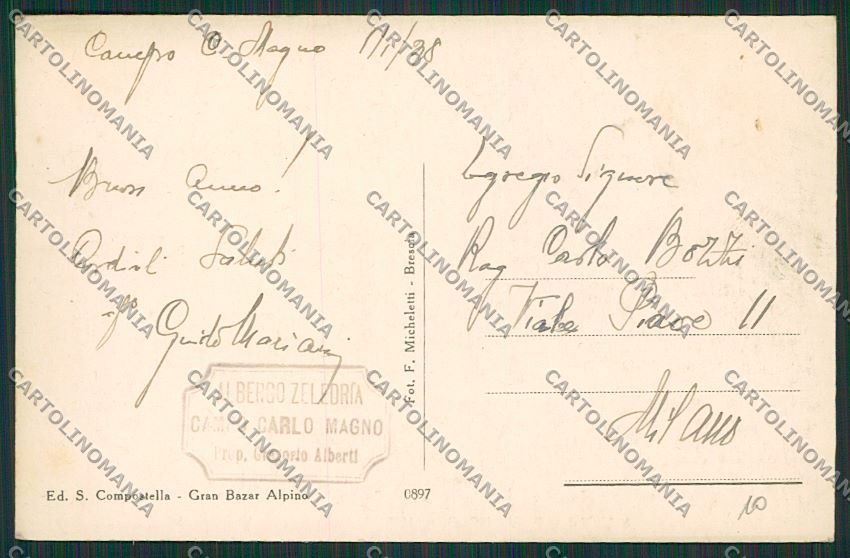 Campo C. Magno 1/1/38
Buon Anno!
Cordiali Saluti
Guido Mariani
ALBERGO ZELEDRIA
CAMPO CARLO MAGNO
Prop. Gregorio Alberti
Ed. S. Compostella - Gran Bazar Alpino
0897
Fot. F. Micheletti - Brescia
Egregio Signore
Rag Carlo Bozzi
Viale Piave 11
Milano
10
CARTOLINOMANIA